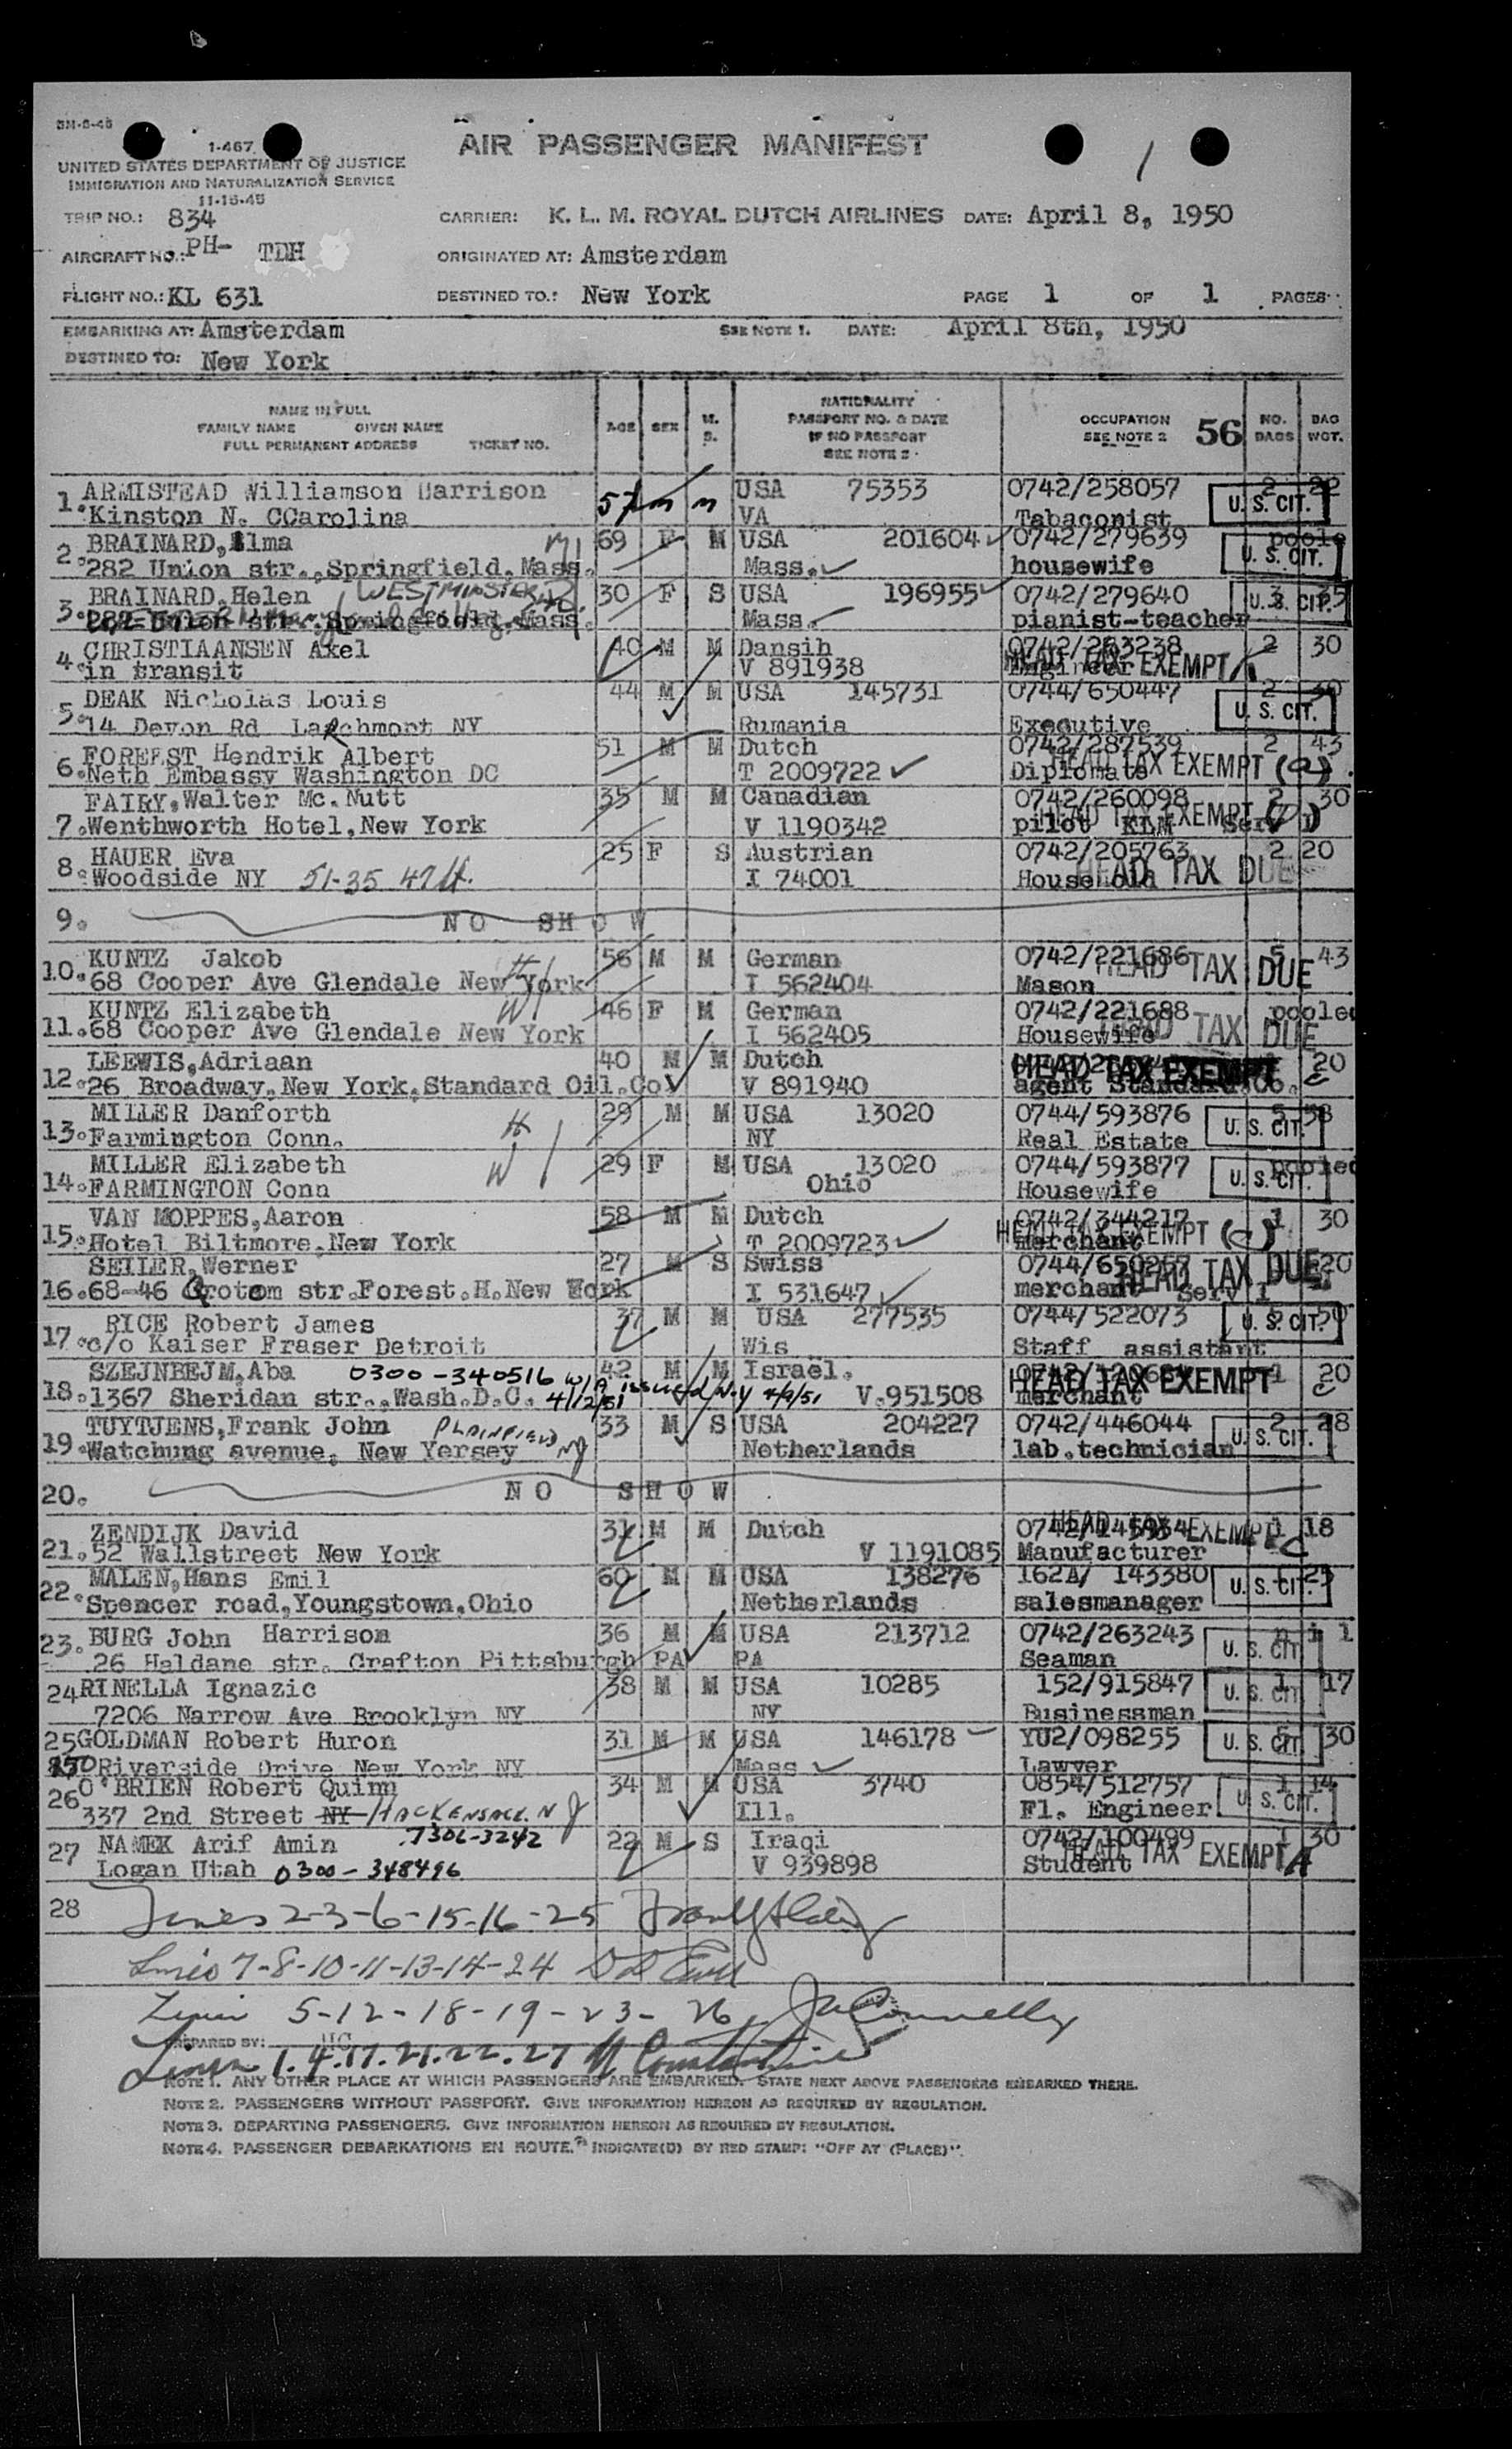 SM-6-45
1-467
UNITED STATES DEPARTMENT OF JUSTICE
IMMIGRATION AND NATURALIZATION SERVICE
11-15-45
AIR PASSENGER MANIFEST
1
TRIP NO.: 834
CARRIER: K. L. M. ROYAL DUTCH AIRLINES DATE: April 8, 1950
AIRCRAFT NO.: PH- TDH
ORIGINATED AT: Amsterdam
FLIGHT NO.: KL 631
DESTINED TO.: New York
PAGE 1 OF 1 PAGES
EMBARKING AT: Amsterdam SEE NOTE 1. DATE: April 8th, 1950
DESTINED TO: New York
NAME IN FULL
FAMILY NAME GIVEN NAME
FULL PERMANENT ADDRESS TICKET NO.
AGE SEX M. S.
NATIONALITY
PASSPORT NO. & DATE
IF NO PASSPORT
SEE NOTE 2
OCCUPATION
SEE NOTE 2 56
NO. BAGS
BAG WGT.
1. ARMISTEAD Williamson Harrison 57 m m USA 75353 0742/258057 2 22
Kinston N. CCarolina VA Tabaconist U. S. CIT.
2. BRAINARD, Elma 69 F M USA 201604 0742/279639 poole
282 Union str., Springfield, Mass. Mass. housewife U. S. CIT.
3. BRAINARD, Helen WESTMINSTER 30 F S USA 196955 0742/279640
282 Union str. Springfield, Mass. Mass. pianist-teacher U. S. CIT.
4. CHRISTIAANSEN Axel 40 M M Dansih 0742/283238 2 30
in transit V 891938 Engineer HEAD TAX EXEMPT
5. DEAK Nicholas Louis 44 M M USA 145731 0744/650447 2 30
14 Devon Rd LaRchmort NY Rumania Executive U. S. CIT.
6. FOREEST Hendrik Albert 51 M M Dutch 0742/287539 2 43
Neth Embassy Washington DC T 2009722 Diplomate HEAD TAX EXEMPT (a)
7. FAIRY, Walter Mc. Nutt 35 M M Canadian 0742/260098 2 30
Wenthworth Hotel, New York V 1190342 pilot KLM Serv 1 HEAD TAX EXEMPT
8. HAUER Eva 25 F S Austrian 0742/205763 2 20
Woodside NY 51-35 47 St. I 74001 Household HEAD TAX DUE
9. NO SHOW
10. KUNTZ Jakob H 56 M M German 0742/221686 5 43
68 Cooper Ave Glendale New York I 562404 Mason HEAD TAX DUE
11. KUNTZ Elizabeth W 46 F M German 0742/221688 pooled
68 Cooper Ave Glendale New York I 562405 Housewife HEAD TAX DUE
12. LEEWIS, Adriaan 40 M M Dutch HEAD TAX EXEMPT 20
26 Broadway, New York, Standard Oil. Co V 891940 agent Standard Co. c
13. MILLER Danforth H 29 M M USA 13020 0744/593876 5 58
Farmington Conn. NY Real Estate U. S. CIT.
14. MILLER Elizabeth W 29 F M USA 13020 0744/593877 pooled
FARMINGTON Conn Ohio Housewife U. S. CIT.
15. VAN MOPPES, Aaron 58 M M Dutch 0742/344217 1 30
Hotel Biltmore, New York T 2009723 merchant HEAD TAX EXEMPT
16. SEILER, Werner 27 M S Swiss 0744/650257 20
68-46 Grotom str. Forest. H. New York I 531647 merchant Serv 1 HEAD TAX DUE
17. RICE Robert James 37 M M USA 277535 0744/522073 50
c/o Kaiser Fraser Detroit Wis Staff assistant U. S. CIT.
18. SZEJNBEJM, Aba 0300-340516 42 M M Israël. 1 20
1367 Sheridan str., Wash. D.C. 4/12/51 issued N.Y 4/9/51 V.951508 merchant HEAD TAX EXEMPT c
19. TUYTJENS, Frank John PLAINFIELD NJ 33 M S USA 204227 0742/446044 2 28
Watchung avenue, New Yersey Netherlands lab.technician U. S. CIT.
20. NO SHOW
21. ZENDIJK David 31 M M Dutch 0742/145934 1 18
52 Wallstreet New York V 1191085 Manufacturer HEAD TAX EXEMPT C
22. MALEN, Hans Emil 60 M M USA 138276 162A/ 143380 1 25
Spencer road, Youngstown, Ohio Netherlands salesmanager U. S. CIT.
23. BURG John Harrison 36 M M USA 213712 0742/263243 n i l
26 Haldane str. Crafton Pittsburgh PA PA Seaman U. S. CIT
24 RINELLA Ignazic 38 M M USA 10285 152/915847 1 17
7206 Narrow Ave Brooklyn NY NY Businessman U. S. CIT
25 GOLDMAN Robert Huron 31 M M USA 146178 YU2/098255 5 30
Riverside Drive New York NY Mass Lawyer U. S. CIT
26 O'BRIEN Robert Quinn 34 M M USA 3740 0854/512757 1 14
337 2nd Street NY HACKENSACK. NJ Ill. Fl. Engineer U. S. CIT.
27 NAMEK Arif Amin 7306-3242 22 M S Iraqi 0742/100499 1 30
Logan Utah 0300-348496 V 939898 Student HEAD TAX EXEMPT A
28 Lines 2-3-6-15-16-25
Lines 7-8-10-11-13-14-24
Lines 5-12-18-19-23-26 Connelly
PREPARED BY:
Lines 1.4.17.21.22.27
NOTE 1. ANY OTHER PLACE AT WHICH PASSENGERS ARE EMBARKED. STATE NEXT ABOVE PASSENGERS EMBARKED THERE.
NOTE 2. PASSENGERS WITHOUT PASSPORT. GIVE INFORMATION HEREON AS REQUIRED BY REGULATION.
NOTE 3. DEPARTING PASSENGERS. GIVE INFORMATION HEREON AS REQUIRED BY REGULATION.
NOTE 4. PASSENGER DEBARKATIONS EN ROUTE. INDICATE(D) BY RED STAMP: "OFF AT (PLACE)".